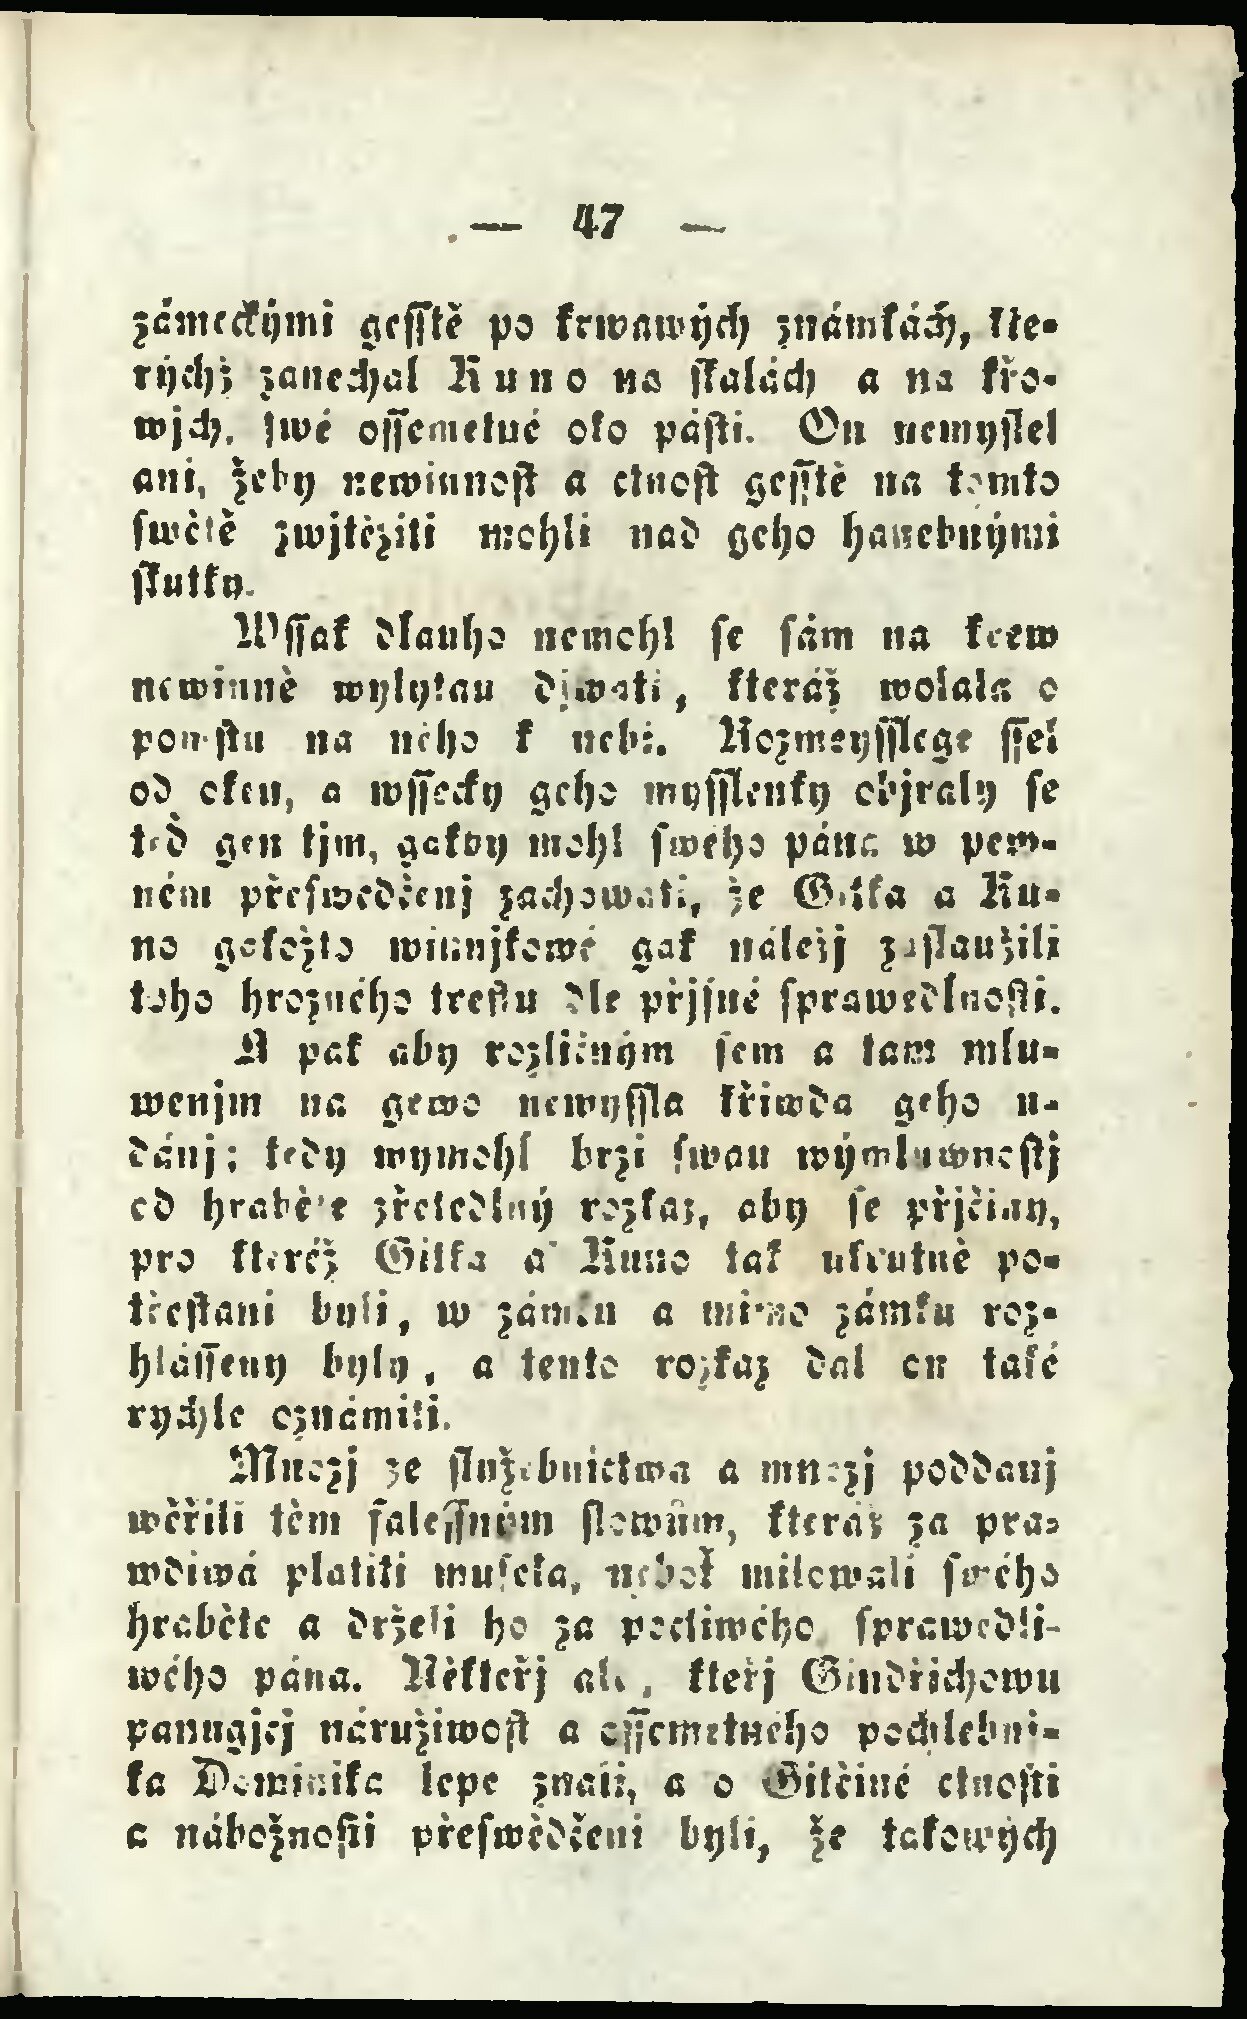 — 47 —
zámeckými gesstě po krwawých známkách, kte-
rýchž zanechal Kuno na skalách a na křo-
wjch, swé ossemetné oko pásti. On nemyslel
ani, žeby newinnost a ctnost gesstě na tomto
swětě zwjtěziti mohli nad geho hanebnými
skutky.
Wssak dlauho nemohl se sám na krew
newinně wylytau djwati, kteráž wolala o
pomstu na něho k nebi. Rozmeysslege ssel
od oken, a wssecky geho mysslenky objraly se
teď gen tjm, gakby mohl swého pána w pew-
ném přeswědčenj zachowati, že Gitka a Ku-
no gakožto winnjkowé gak náležj zaslaužili
toho hrozného trestu dle přjsné sprawedlnosti.
A pak aby rozličným sem a tam mlu-
wenjm na gewo newyssla křiwda geho u-
dánj; tedy wymohl brzi swau wýmluwnostj
od hraběte zřetedlný rozkaz, aby se přjčiny,
pro kteréž Gitka a Kuno tak ukrutně po-
třestani byli, w zámku a mimo zámku roz-
hlásseny byly, a tento rozkaz dal on také
rychle oznámiti.
Mnozj ze služebnictwa a mnozj poddanj
wěřili těm falessným slowům, kteráž za pra-
wdiwá platiti musela, neboť milowali swého
hraběte a drželi ho za poctiwého, sprawedli-
wého pána. Někteřj ale, kteřj Gindřichowu
panugjcj náružiwost a ossemetného pochlebni-
ka Dominika lépe znali, a o Gitčiné ctnosti
a nábožnosti přeswědčeni byli, že takowých